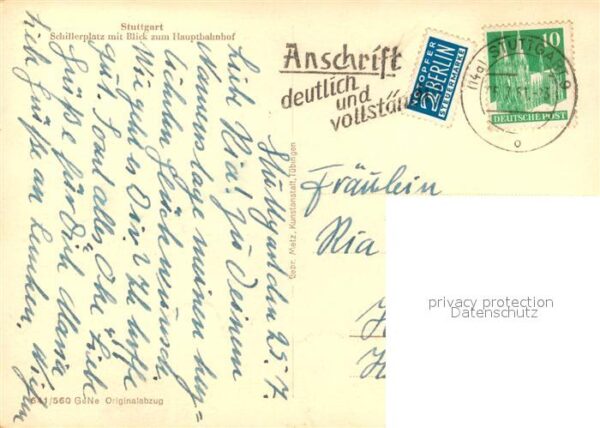 Stuttgart
Schillerplatz mit Blick zum Hauptbahnhof
Stuttgart den 25. 7.
Liebe Ria! Zu Deinem
Namenstage meinen herz-
lichen Glückwunsch
Wie geht es Dir? Ich hoffe
gut. Sonst alles Liebe
Grüße für Dich Maria
Grüße an
641/560 GeNe Originalabzug
Gebr. Metz, Kunstanstalt, Tübingen
Anschrift
deutlich
und
vollstän
NOTOPFER
2 BERLIN
STEUERMARKE
(14a) STUTTGART 9
10
DEUTSCHE POST
Fräulein
Ria
privacy protection
Datenschutz